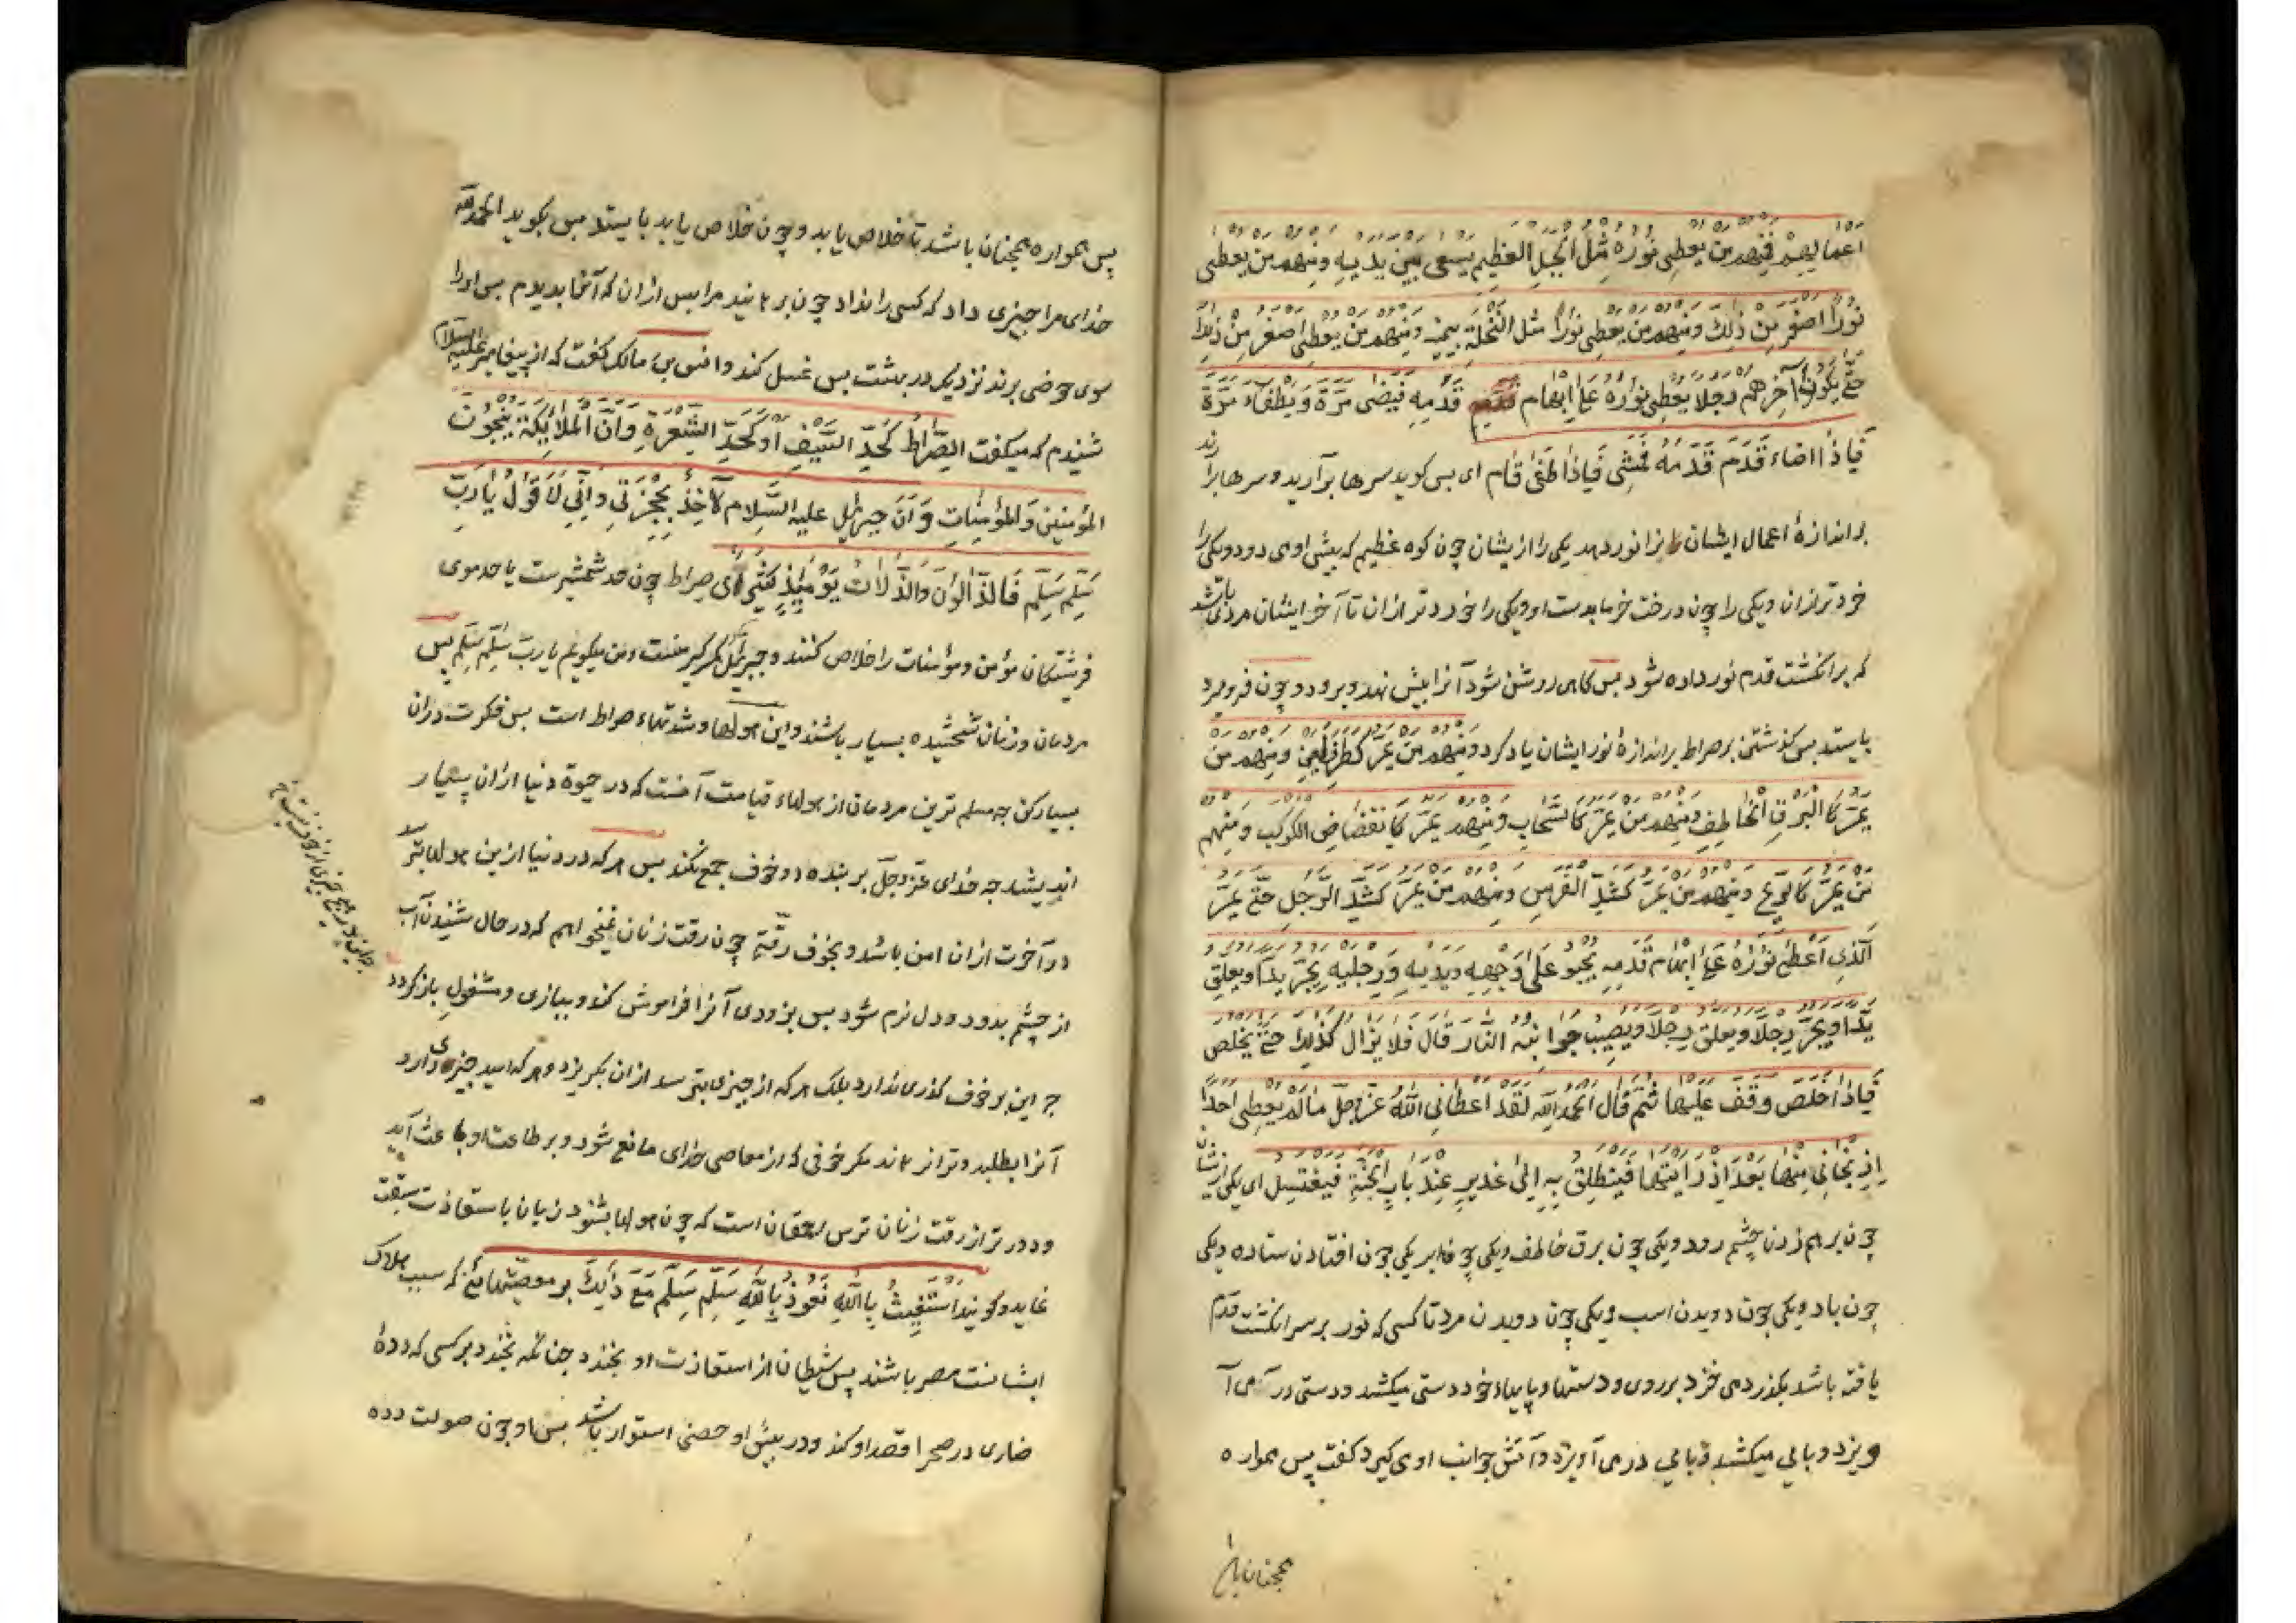 اعمالهم فمنهم من يعطى نوره مثل الجبل العظيم يسعى بين يديه ومنهم من يعطى
نورا اصغر من ذلك ومنهم من يعطى نورا مثل النخلة بيمينه ومنهم من يعطى اصغر من ذلك
حتى يكون آخرهم رجلا يعطى نوره على ابهام قدمه فيضى مرة ويطفاء مرة
فاذا اضاء قدم قدمه فمشى فاذا طفى قام اى پس كويد سرها برآريد وسرها برآرند
بر اندازهٔ اعمال ايشان را نور دهد يكى را از يشان چون كوه عظيم كه پيش او مى دود ويكى را
خردتر ازان ويكى را چون درخت خرما بدست او ويكى را خردتر ازان تا آخر ايشان مردى باشد
كه بر انكشت قدم نور داده شود پس كاهى روشن شود آنرا پيش نهد وبرود وچون فروميرد
بايستد پس كذشتن بر صراط بر اندازهٔ نور ايشان ياد كرد ومنهم من يمر كطرف العين ومنهم من
يمر كالبرق الخاطف ومنهم من يمر كالسحاب ومنهم يمر كانقضاض الكوكب ومنهم
من يمر كالريح ومنهم من يمر كشد الفرس ومنهم من يمر كشد الرجل حتى يمر
الذى اعطى نوره على ابهام قدمه يحبو على وجهه ويديه ورجليه يجر يدا ويعلق
يدا ويجر رجلا ويعلق رجلا ويصيب جوانبه النار قال فلا يزال كذلك حتى يخلص
فاذا خلص وقف عليها ثم قال الحمد لله لقد اعطانى الله عز وجل ما لم يعطى احدا
اذ نجانى منها بعد اذ رايتها فينطلق به الى غدير عند باب الجنة فيغتسل اى يكى ازيشان
چون برهم زدن چشم رود ويكى چون برق خاطف ويكى چون ابر يكى چون افتادن ستاره ويكى
چون باد ويكى چون دويدن اسب ويكى چون دويدن مرد تا كسى كه نور بر سر انكشت قدم
يافته باشد بكذرد مى خزد بر روى ودستها وپايهاء خود دستى ميكشد ودستى در مى آ
ويزد وپايى ميكشد وپايى در مى آويزد وآتش جوانب او مى كيرد كفت پس همواره
همچنان باشد
پس همواره همچنان باشد تا خلاص يابد وچون خلاص يابد بايستد پس بكويد الحمد لله
خداى مرا چيزى داد كه كسى را نداد چون برهانيد مرا پس ازان كه آنرا بديدم پس او را
سوى حوضى برند نزديك در بهشت پس غسل كند وانس بن مالك كفت كه از پيغامبر عليه السلام
شنيدم كه ميكفت الصراط كحد السيف او كحد الشعرة وان الملائكة ينجون
المؤمنين والمؤمنات وان جبرئيل عليه السلام لآخذ بحجزتى وانى لاقول يا رب
سلم سلم فالزالون والزالات يومئذ كثير اى صراط چون حد شمشيرست يا حد موى
فرشتكان مؤمن ومؤمنات را خلاص كنند وجبرئيل كمركير منست ومن ميكويم يا رب سلم سلم پس
مردمان وزنان شخشيده بسيار باشند واين هولها وشدتهاء صراط است پس فكرت دران
بسيار كن چه مسلم ترين مردمان از هولهاء قيامت آنست كه در حيوة دنيا ازان بسيار
انديشد چه خداى عز وجل بر بنده دو خوف جمع نكند پس هر كه در دنيا ازين هولها بترسد
در آخرت ازان امن باشد وبخوف رقتى چون رقت زنان نميخواهم كه در حال شنيدن آب
از چشم بدود ودل نرم شود پس بزودى آنرا فراموش كند وببازى ومشغولى بازكردد
چه اين بر خوف كذرى ندارد بلك هر كه از چيزى بترسد ازان بكريزد وهر كه اميد چيزى دارد
آنرا بطلبد وترا نرهاند مكر خوفى كه از معاصى خداى مانع شود وبر طاعت او باعث آيد
ودورتر از رقت زنان ترس احمقان است كه چون هولها بشنود زبانها باستعاذت سبقت
نمايد وكويند استغيث بالله نعوذ بالله سلم سلم مع ذلك بر معصيتهائى كه سبب هلاك
ايشانست مصر باشند پس شيطان از استعاذت او بخندد چنانكه بخندد بر كسى كه ددهٔ
ضارى در صحرا قصد او كند ودر پيش او حصنى استوار باشد پس او چون صولت دده